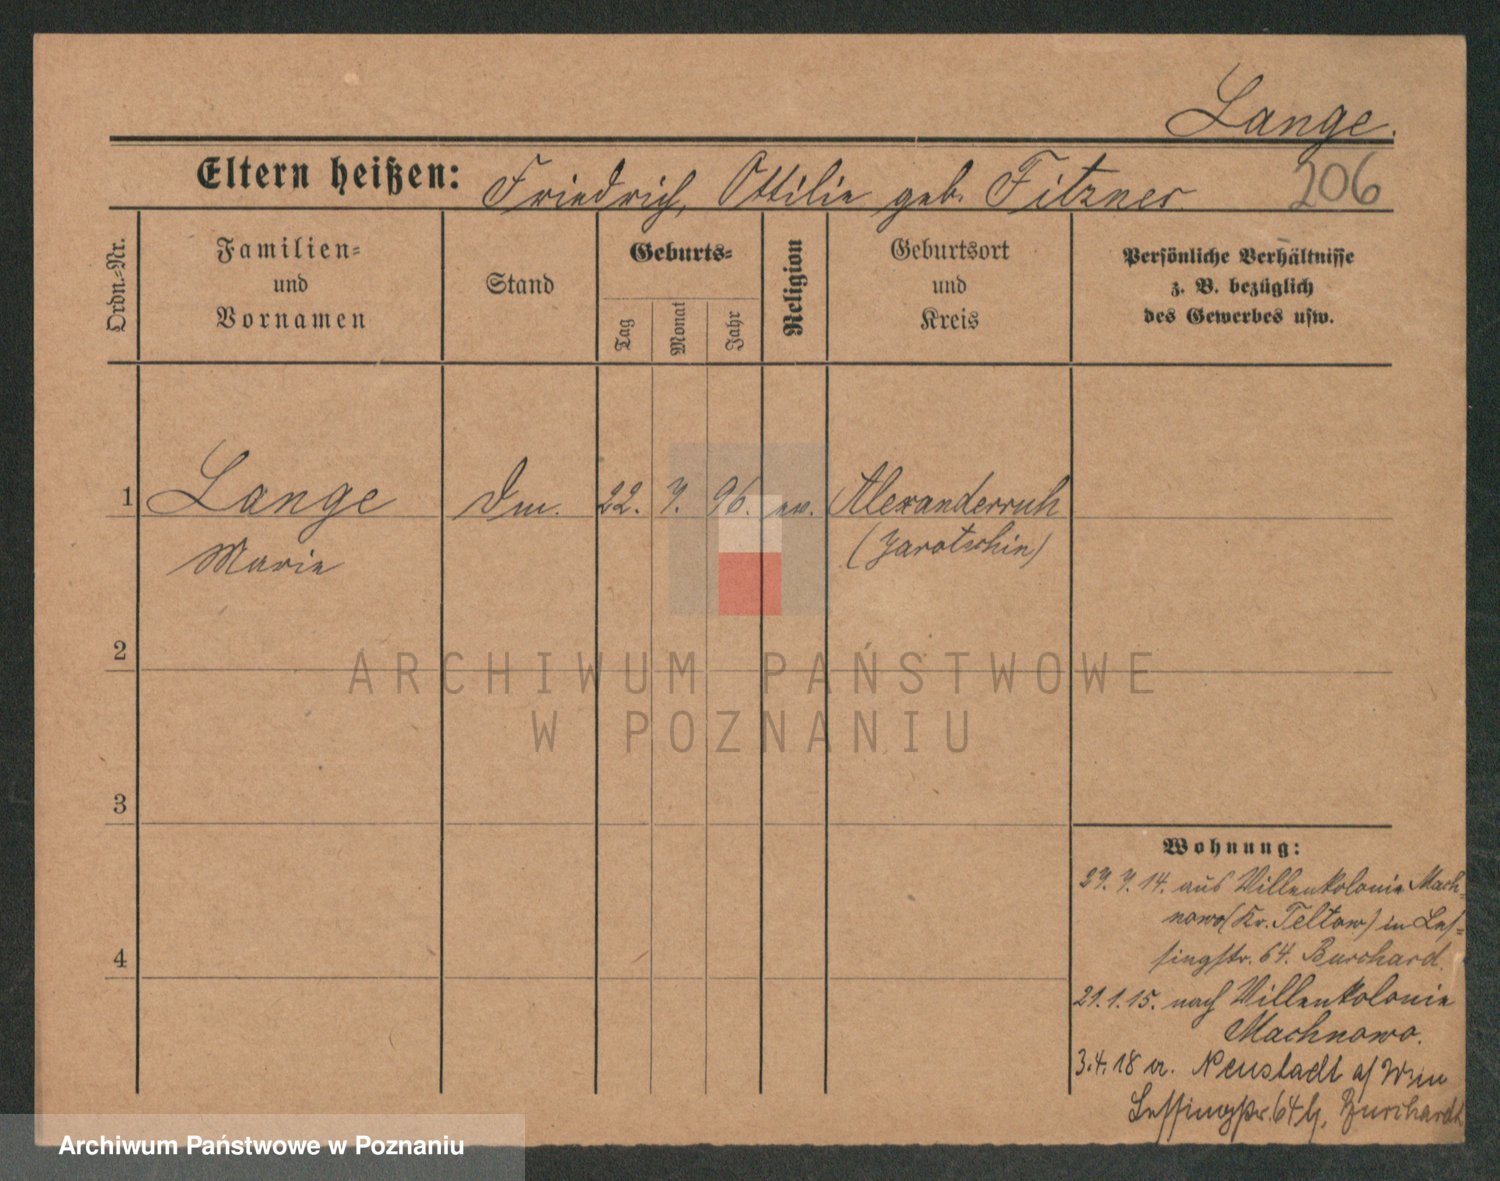 Lange.
Eltern heißen: Friedrich, Ottilie geb. Fitzner
206
Ordn.-Nr.
Familien-
und
Vornamen
Stand
Geburts-
Tag
Monat
Jahr
Religion
Geburtsort
und
Kreis
Persönliche Verhältnisse
z. B. bezüglich
des Gewerbes usw.
1 Lange 22. 7. 96. ev. Alexanderruh
Marie (Jarotschin)
2
3
4
ARCHIWUM PAŃSTWOWE
W POZNANIU
Wohnung:
27. 7. 14. aus Villenkolonie Mach-
nowo (Kr. Teltow) in Les-
singstr. 64. Burchard.
21. 1. 15. nach Villenkolonie
Machnowo.
3. 4. 18 v. Neustadt a/
Lessingstr. 64 b, Burchardt
Archiwum Państwowe w Poznaniu